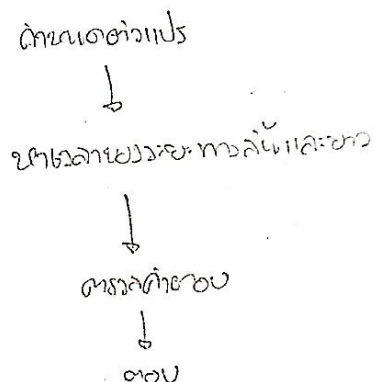 กำหนดตัวแปร
หาเวลาของระยะทางสั้นและยาว
ตรวจคำตอบ
ตอบ